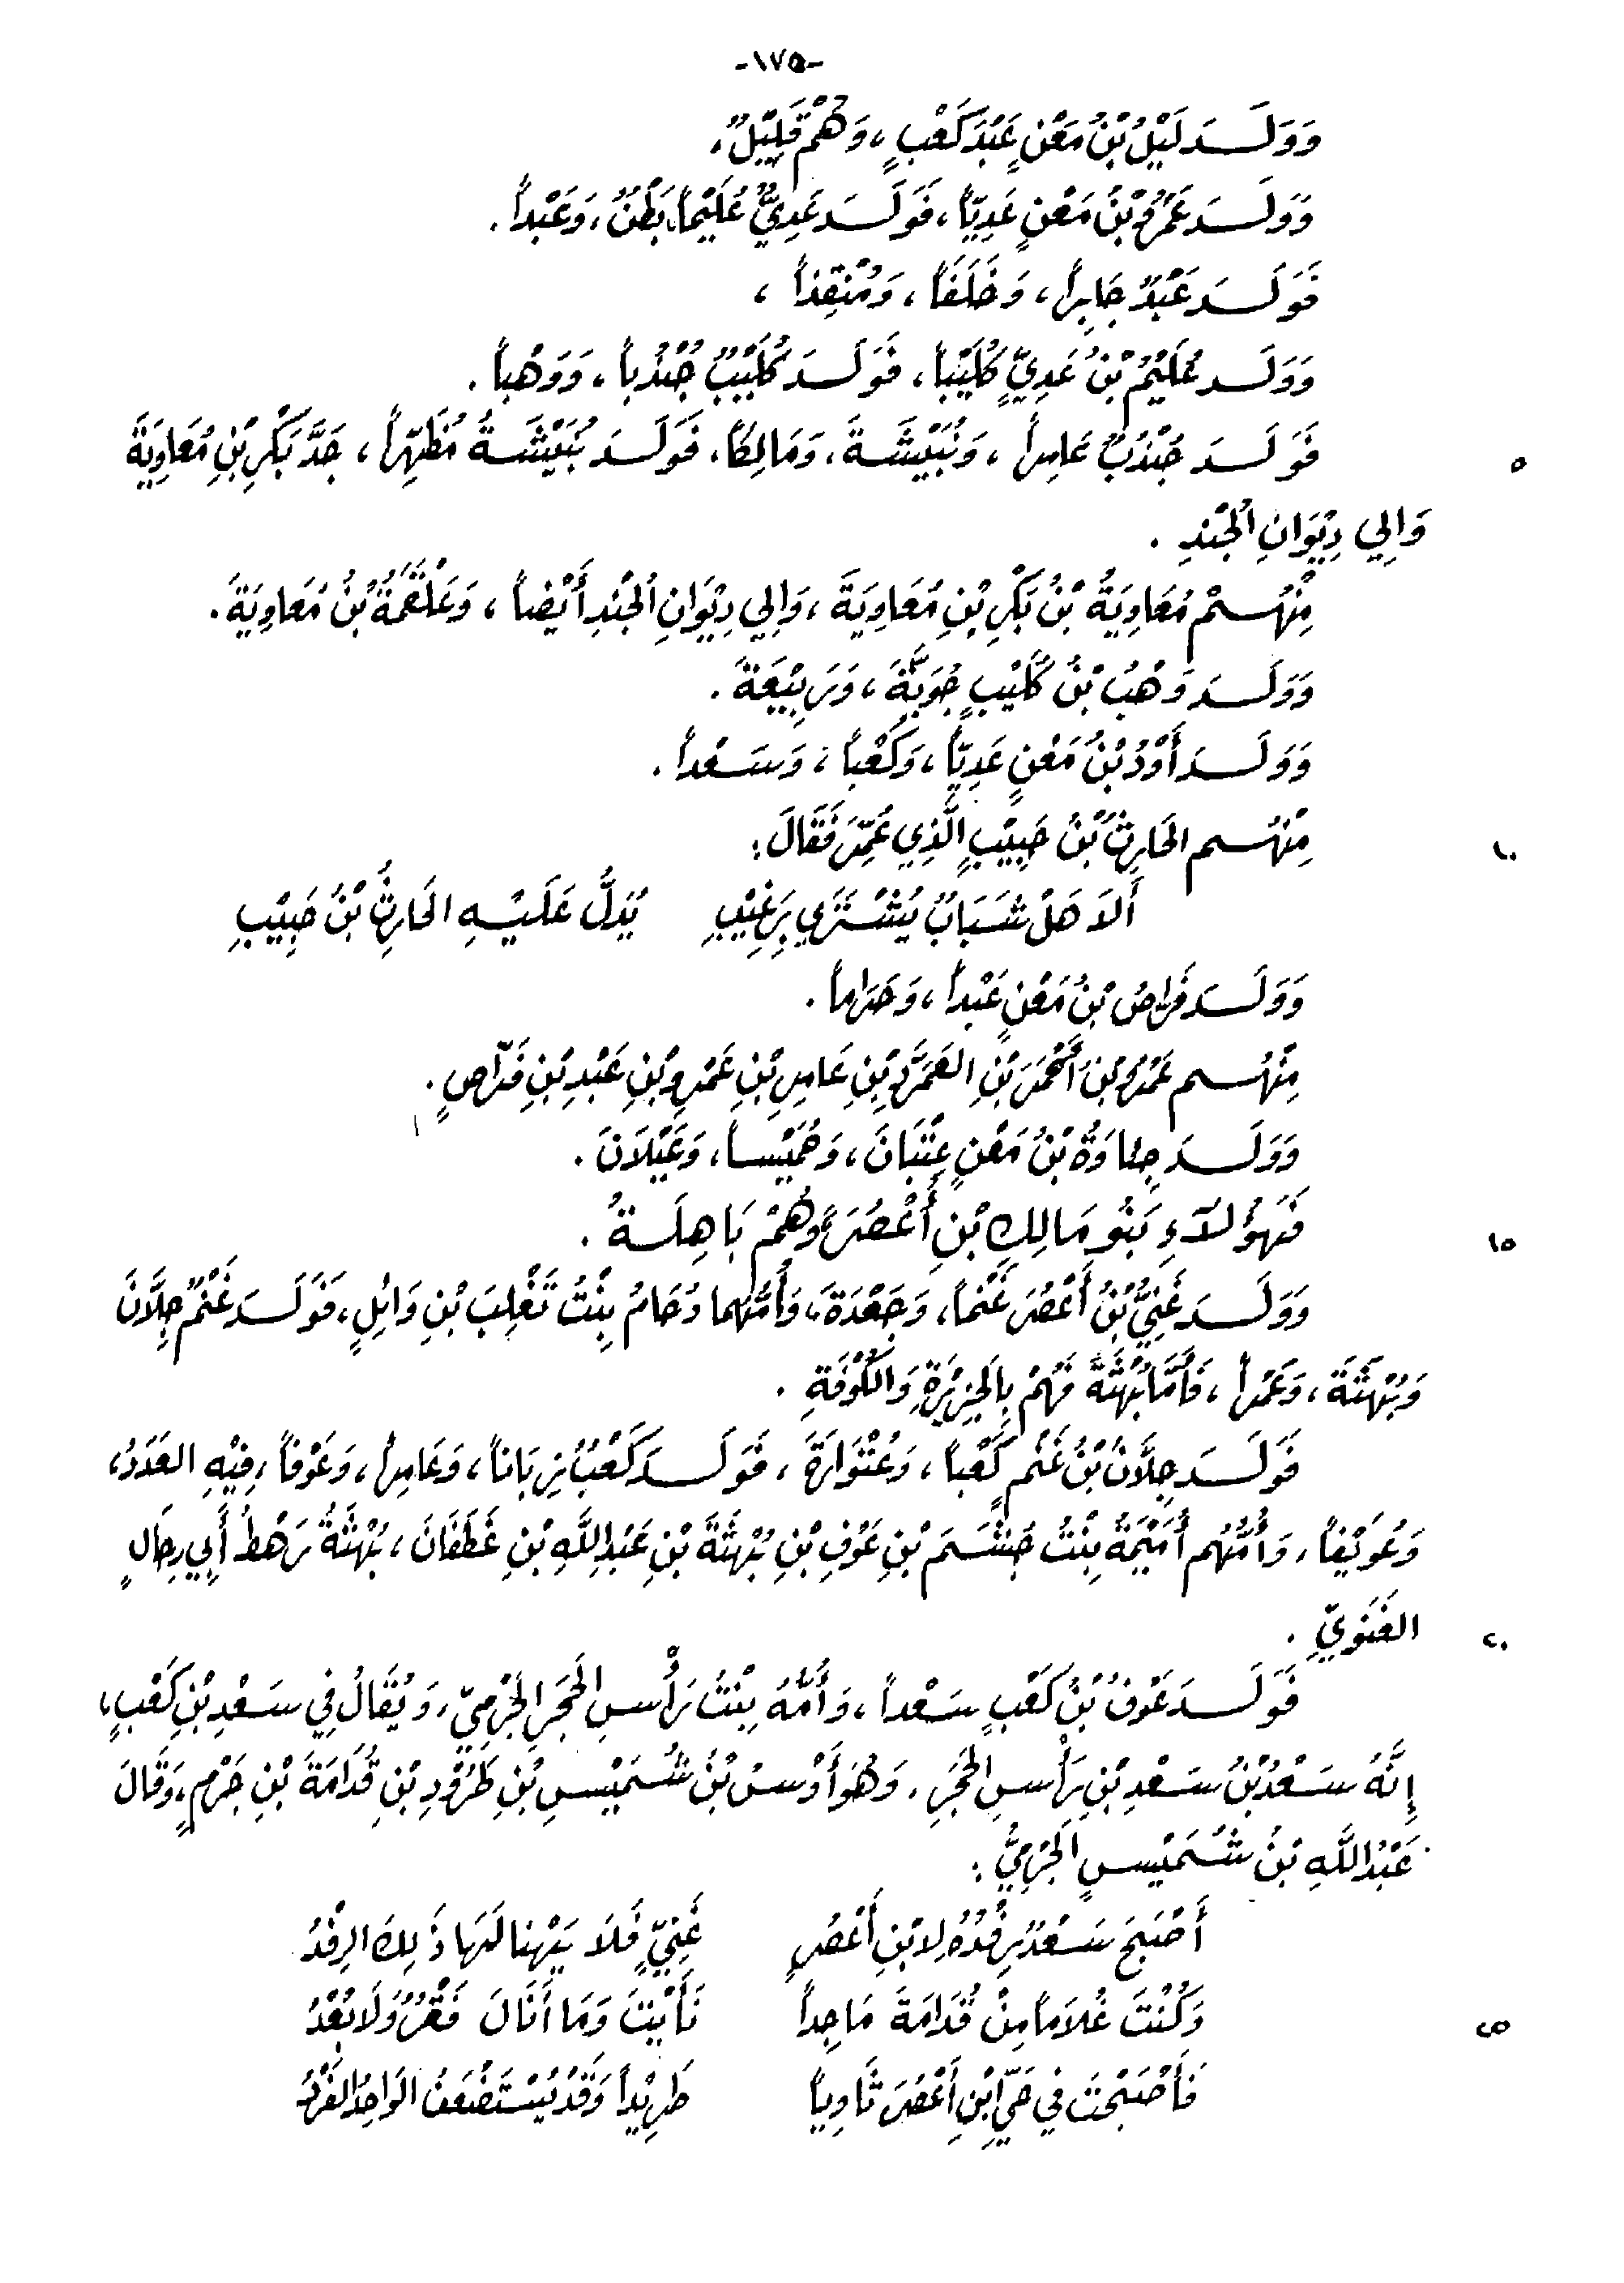 -١٧٥-
وَوَلَـدَ لَيْلُ بْنُ مَعْنٍ عَبْدَ كَعْبٍ، وَهُمْ قَلِيْلٌ.
وَوَلَـدَ عَمْرُو بْنُ مَعْنٍ عَدِيّاً، فَوَلَـدَ عَدِيٌّ عُلَيْماً، بَطْنٌ، وَعَبْداً.
فَوَلَـدَ عَبْدٌ جَابِراً، وَخَلَفاً، وَمُنْقِذاً،
وَوَلَـدَ عُلَيْمُ بْنُ عَدِيٍّ كُلَيْباً، فَوَلَـدَ كُلَيْبٌ جُنْدُباً، وَوَهْباً.
فَوَلَـدَ جُنْدُبٌ عَامِراً، وَنُبَيْشَةَ، وَمَالِكاً، فَوَلَـدَ نُبَيْشَةُ مُطَهِّراً، جَدَّ بَكْرِ بْنِ مُعَاوِيَةَ
٥
وَالِي دِيْوَانِ الْجُنْدِ.
مِنْهُـمْ مُعَاوِيَةُ بْنُ بَكْرِ بْنِ مُعَاوِيَةَ، وَالِي دِيْوَانِ الْجُنْدِ أَيْضاً، وَعَلْقَمَةُ بْنُ مُعَاوِيَةَ.
وَوَلَـدَ وَهْبُ بْنُ كُلَيْبٍ جُوَيَّةَ، وَرَبِيْعَةَ.
وَوَلَـدَ أَوْدُ بْنُ مَعْنٍ عَدِيّاً، وَكَعْباً، وَسَعْداً.
مِنْهُـم الحَارِثُ بْنُ حَبِيْبٍ الَّذِي عُمِّرَ فَقَالَ:
١٠
أَلاَ هَلْ شَبَابٌ يُشْتَرَى بِرَغِيْبِ يُدَلُّ عَلَيْـهِ الحَارِثُ بْنُ حَبِيْبِ
وَوَلَـدَ فَرَاصُ بْنُ مَعْنٍ عَبْداً، وَحَرَاماً.
مِنْهُـم عَمْرُو بْنُ أَحْمَرَ بْنِ العَمَرَّدِ بْنِ عَامِرِ بْنِ عَمْرِو بْنِ عَبْدِ بْنِ فَرَّاصٍ.
وَوَلَـدَ جِئَاوَةُ بْنُ مَعْنٍ عِتْبَانَ، وَحُمَيْساً، وَعَيْلاَنَ.
فَهَؤُلآءِ بَنُو مَالِكِ بْنِ أَعْصُرَ، وَهُمْ بَاهِلَـةُ.
١٥
وَوَلَـدَ غَنِيُّ بْنُ أَعْصُرَ غَنْماً، وَجَعْدَةَ، وَأُمُّهُما دُحَامُ بِنْتُ تَغْلِبَ بْنِ وَائِلٍ، فَوَلَـدَ غَنْمٌ جِلَّانَ
وَبُهْثَةَ، وَعَمْراً، فَأَمَّا بُهْثَةُ فَهُمْ بِالجَزِيْرَةِ وَالْكُوْفَةِ.
فَوَلَـدَ جِلَّانُ بْنُ غَنْمٍ كَعْباً، وَعُتْوَارَةَ، فَوَلَـدَ كَعْبٌ زِبَاناً، وَعَامِراً، وَعَوْفاً، فِيْهِ العَدَدُ،
وَعُوَيْفاً، وَأُمُّهُم أُمَيْمَةُ بِنْتُ جُشَـمَ بْنِ عَوْفِ بْنِ بُهْثَةَ بْنِ عَبْدِ اللَّهِ بْنِ غَطَفَانَ، بُهْثَةُ رَهْطُ أَبِي رِحَالٍ
الغَنَوِيِّ.
٢٠
فَوَلَـدَ عَوْفُ بْنُ كَعْبٍ سَعْداً، وَأُمُّهُ بِنْتُ رَأْسِ الحَجَرِ الجَرْمِيِّ، وَيُقَالُ فِي سَعْدِ بْنِ كَعْبٍ،
إِنَّهُ سَعْدُ بْنُ سَعْدِ بْنِ رَأْسِ الحَجَرِ، وَهُوَ أَوْسُ بْنُ شُمَيْسِ بْنِ طَرُوْدِ بْنِ قُدَامَةَ بْنِ جَرْمٍ، وَقَالَ
عَبْدُ اللَّهِ بْنُ شُمَيْسٍ الجَرْمِيُّ:
أَصْبَحَ سَعْدٌ رِفْدُهُ لابْنِ أَعْصُرٍ غَنِيٍّ فَلاَ يَهْنَا لَهَا ذَلِكَ الرِفْدُ
وَكُنْتَ غُلاَماً مِنْ قُدَامَةَ مَاجِداً نَأَيْتَ وَمَا أَنَالَ فَقْرٌ وَلَا بُعْدُ
٢٥
فَأَصْبَحْتَ فِي حَيِّ ابْنِ أَعْصُرَ ثَاوِياً طَرِيْداً وَقَدْ يُسْتَضْعَفُ الوَاحِدُ الفَرْدُ